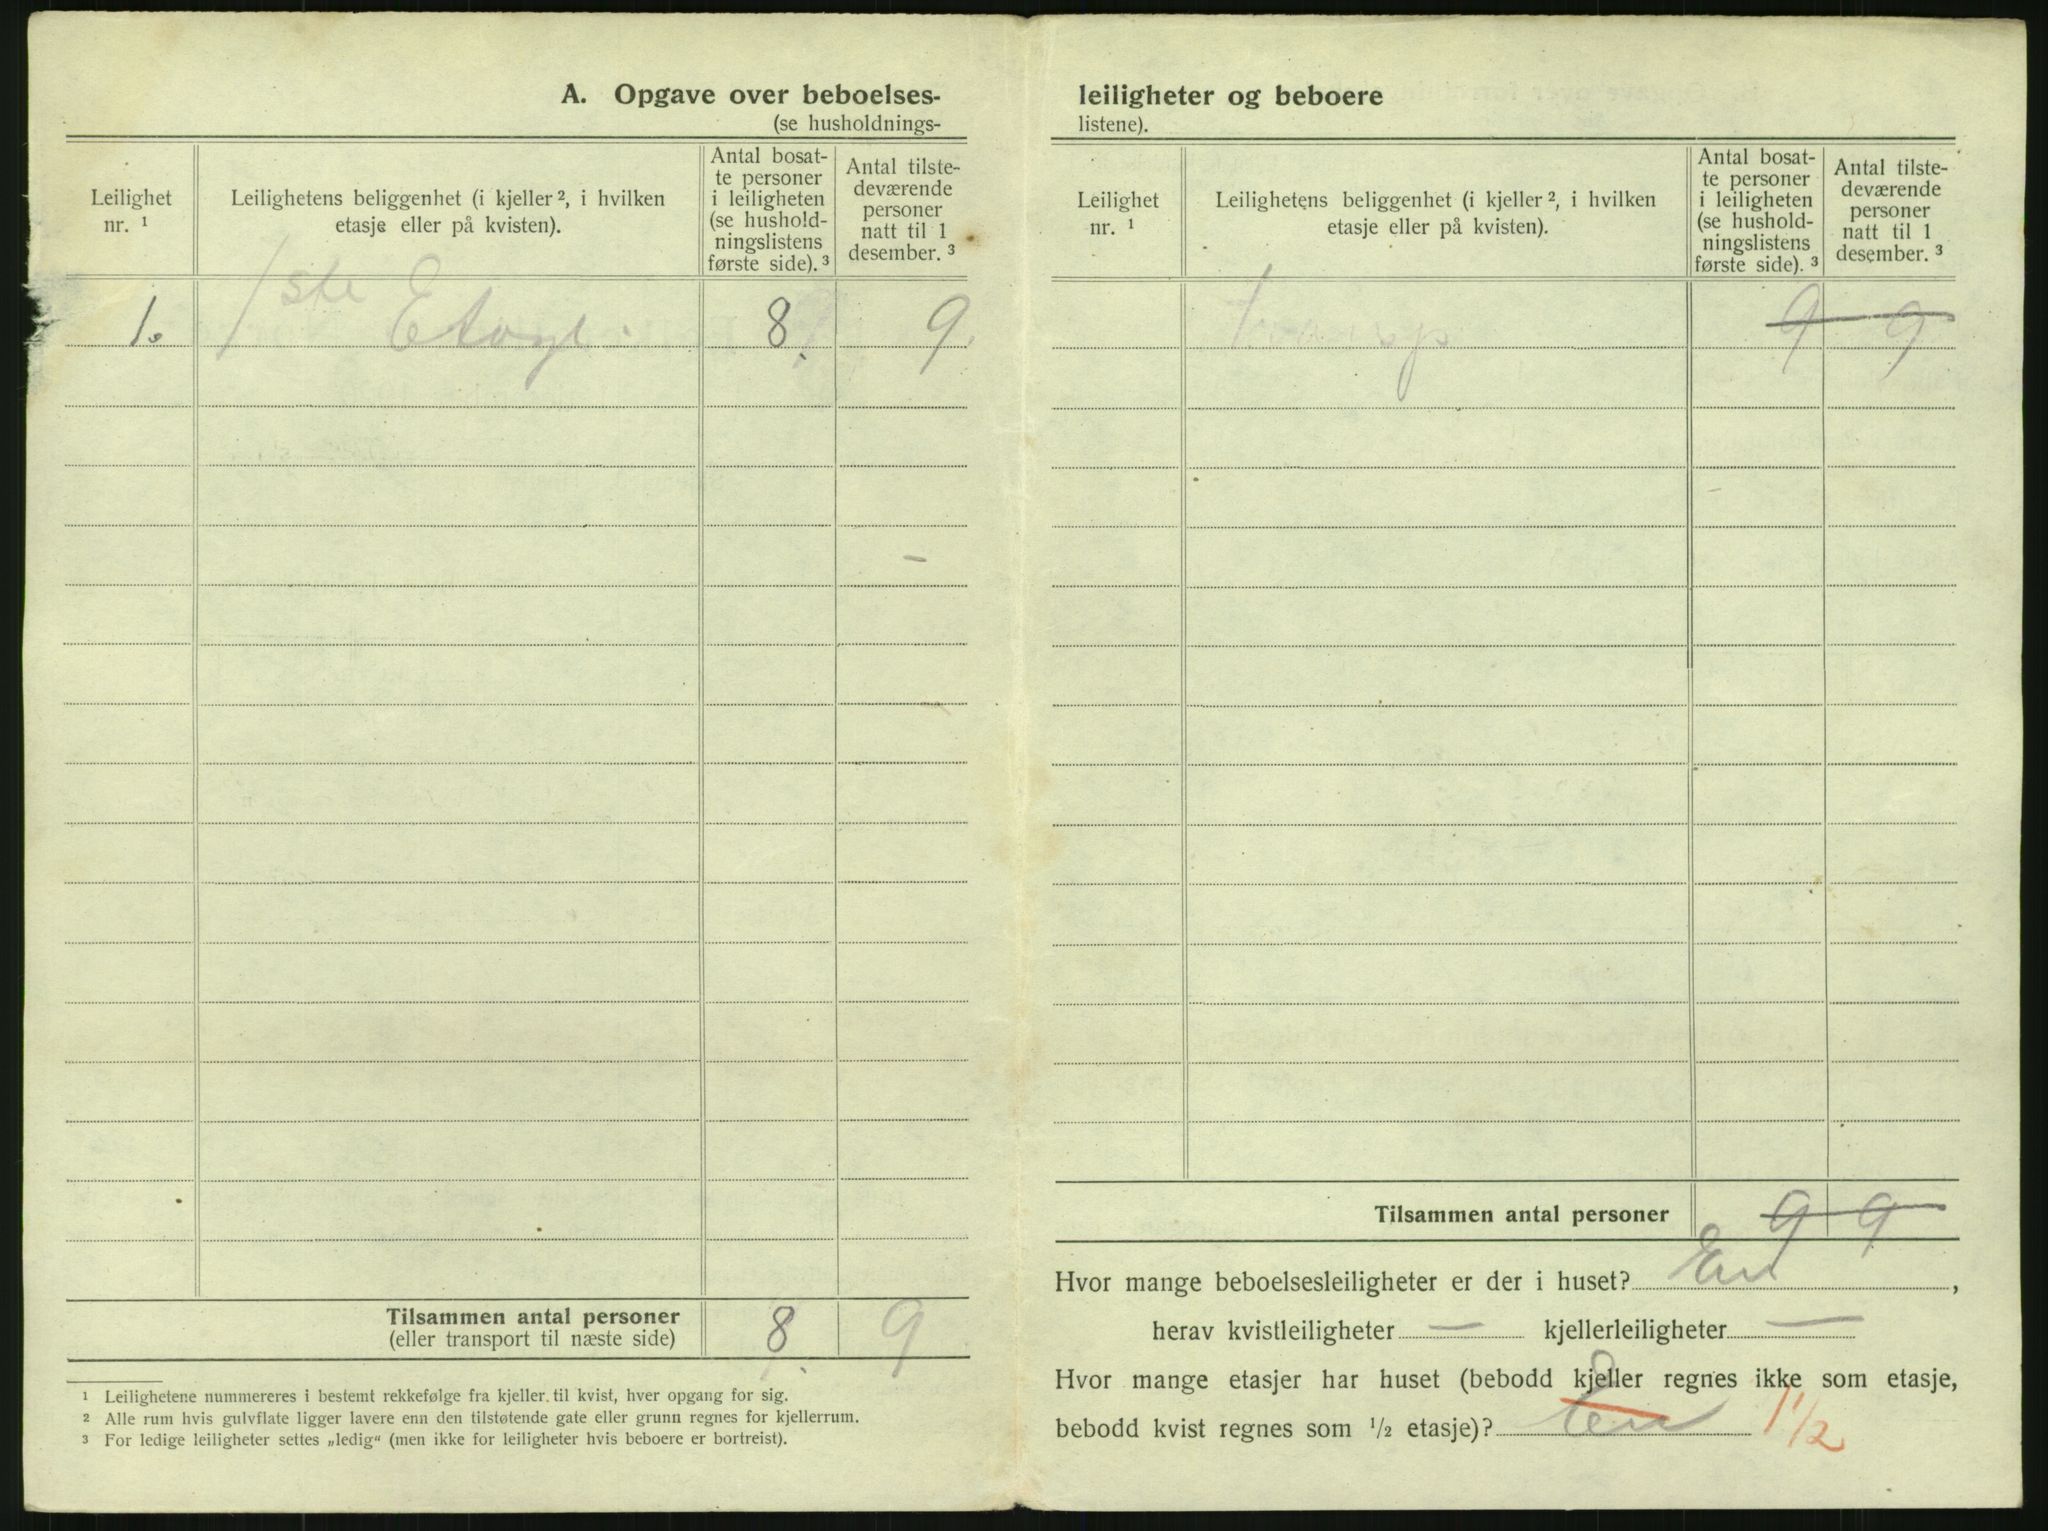 A. Opgave over beboelses-
(se husholdnings-
Leilighet
nr. ¹
Leilighetens beliggenhet (i kjeller ², i hvilken
etasje eller på kvisten).
Antal bosat-
te personer
i leiligheten
(se hushold-
ningslistens
første side). ³
Antal tilste-
deværende
personer
natt til 1
desember. ³
1. 1ste Etage. 8. 9.
Tilsammen antal personer
(eller transport til næste side) 8. 9
¹ Leilighetene nummereres i bestemt rekkefølge fra kjeller til kvist, hver opgang for sig.
² Alle rum hvis gulvflate ligger lavere enn den tilstøtende gate eller grunn regnes for kjellerrum.
³ For ledige leiligheter settes „ledig“ (men ikke for leiligheter hvis beboere er bortreist).
leiligheter og beboere
listene).
Leilighet
nr. ¹
Leilighetens beliggenhet (i kjeller ², i hvilken
etasje eller på kvisten).
Antal bosat-
te personer
i leiligheten
(se hushold-
ningslistens
første side). ³
Antal tilste-
deværende
personer
natt til 1
desember. ³
Transp 9 9
Tilsammen antal personer 9 9
Hvor mange beboelsesleiligheter er der i huset? En ,
herav kvistleiligheter — kjellerleiligheter —
Hvor mange etasjer har huset (bebodd kjeller regnes ikke som etasje,
bebodd kvist regnes som ½ etasje)? En 1½